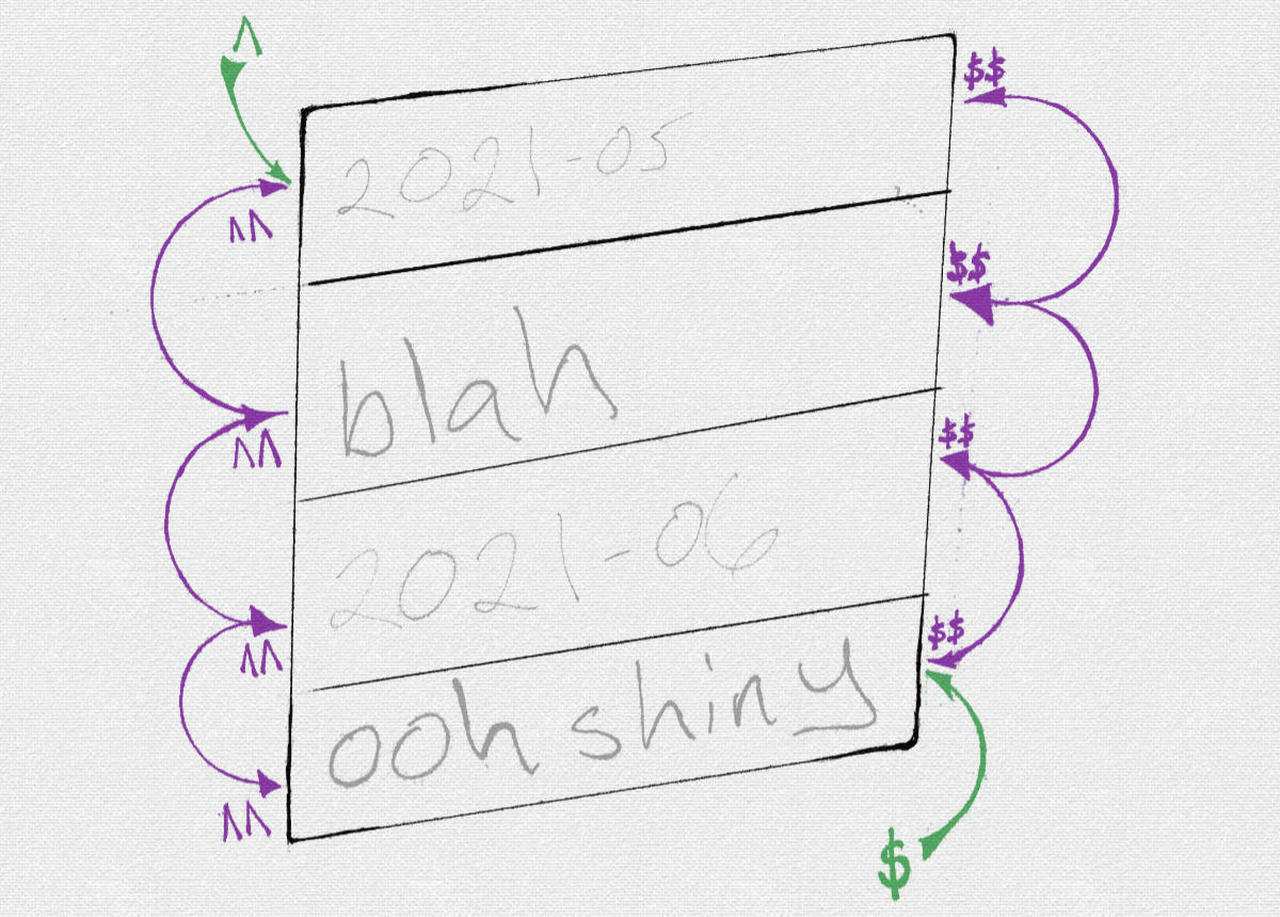 ^
$$
2021-05
^^
$$
blah
^^
$$
2021-06
^^
$$
ooh shiny
^^
$